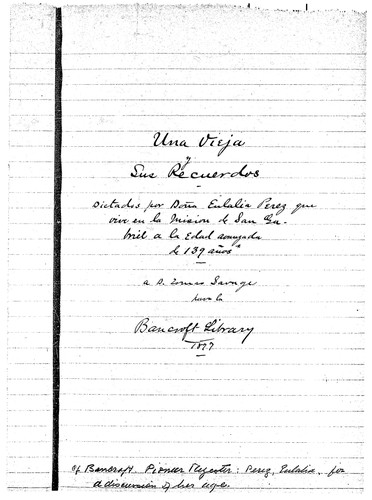 Una Vieja
y
Sus Recuerdos
Dictados por Doña Eulalia Perez que
vive en la Mision de San Ga-
briel a la Edad avanzada
de 139 años
a D. Tomas Savage
para la
Bancroft Library
1877
cf Bancroft Pioneer Register: Perez, Eulalia, for
a discussion of her age.